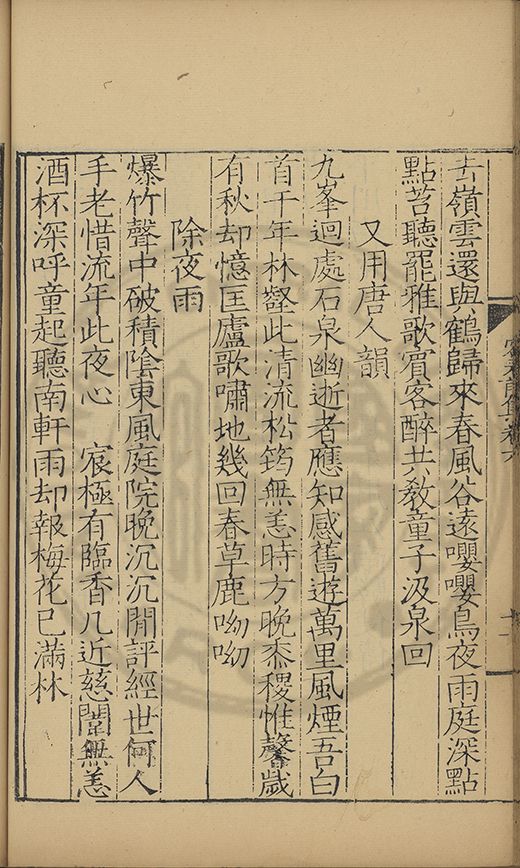 去嶺雲還與鶴歸來春風谷遠嚶嚶鳥夜雨庭深點
點苔聽罷雅歌賓客醉共教童子汲泉回
又用唐人韻
九峯迴處石泉幽逝者應知感舊遊萬里風煙吾白
首千年林壑此清流松筠無恙時方晚黍稷惟馨歲
有秋却憶匡廬歌嘯地幾回春草鹿呦呦
除夜雨
爆竹聲中破積陰東風庭院晚沉沉閒評經世何人
手老惜流年此夜心 宸極有臨香几近慈闈無恙
酒杯深呼童起聽南軒雨却報梅花已滿林